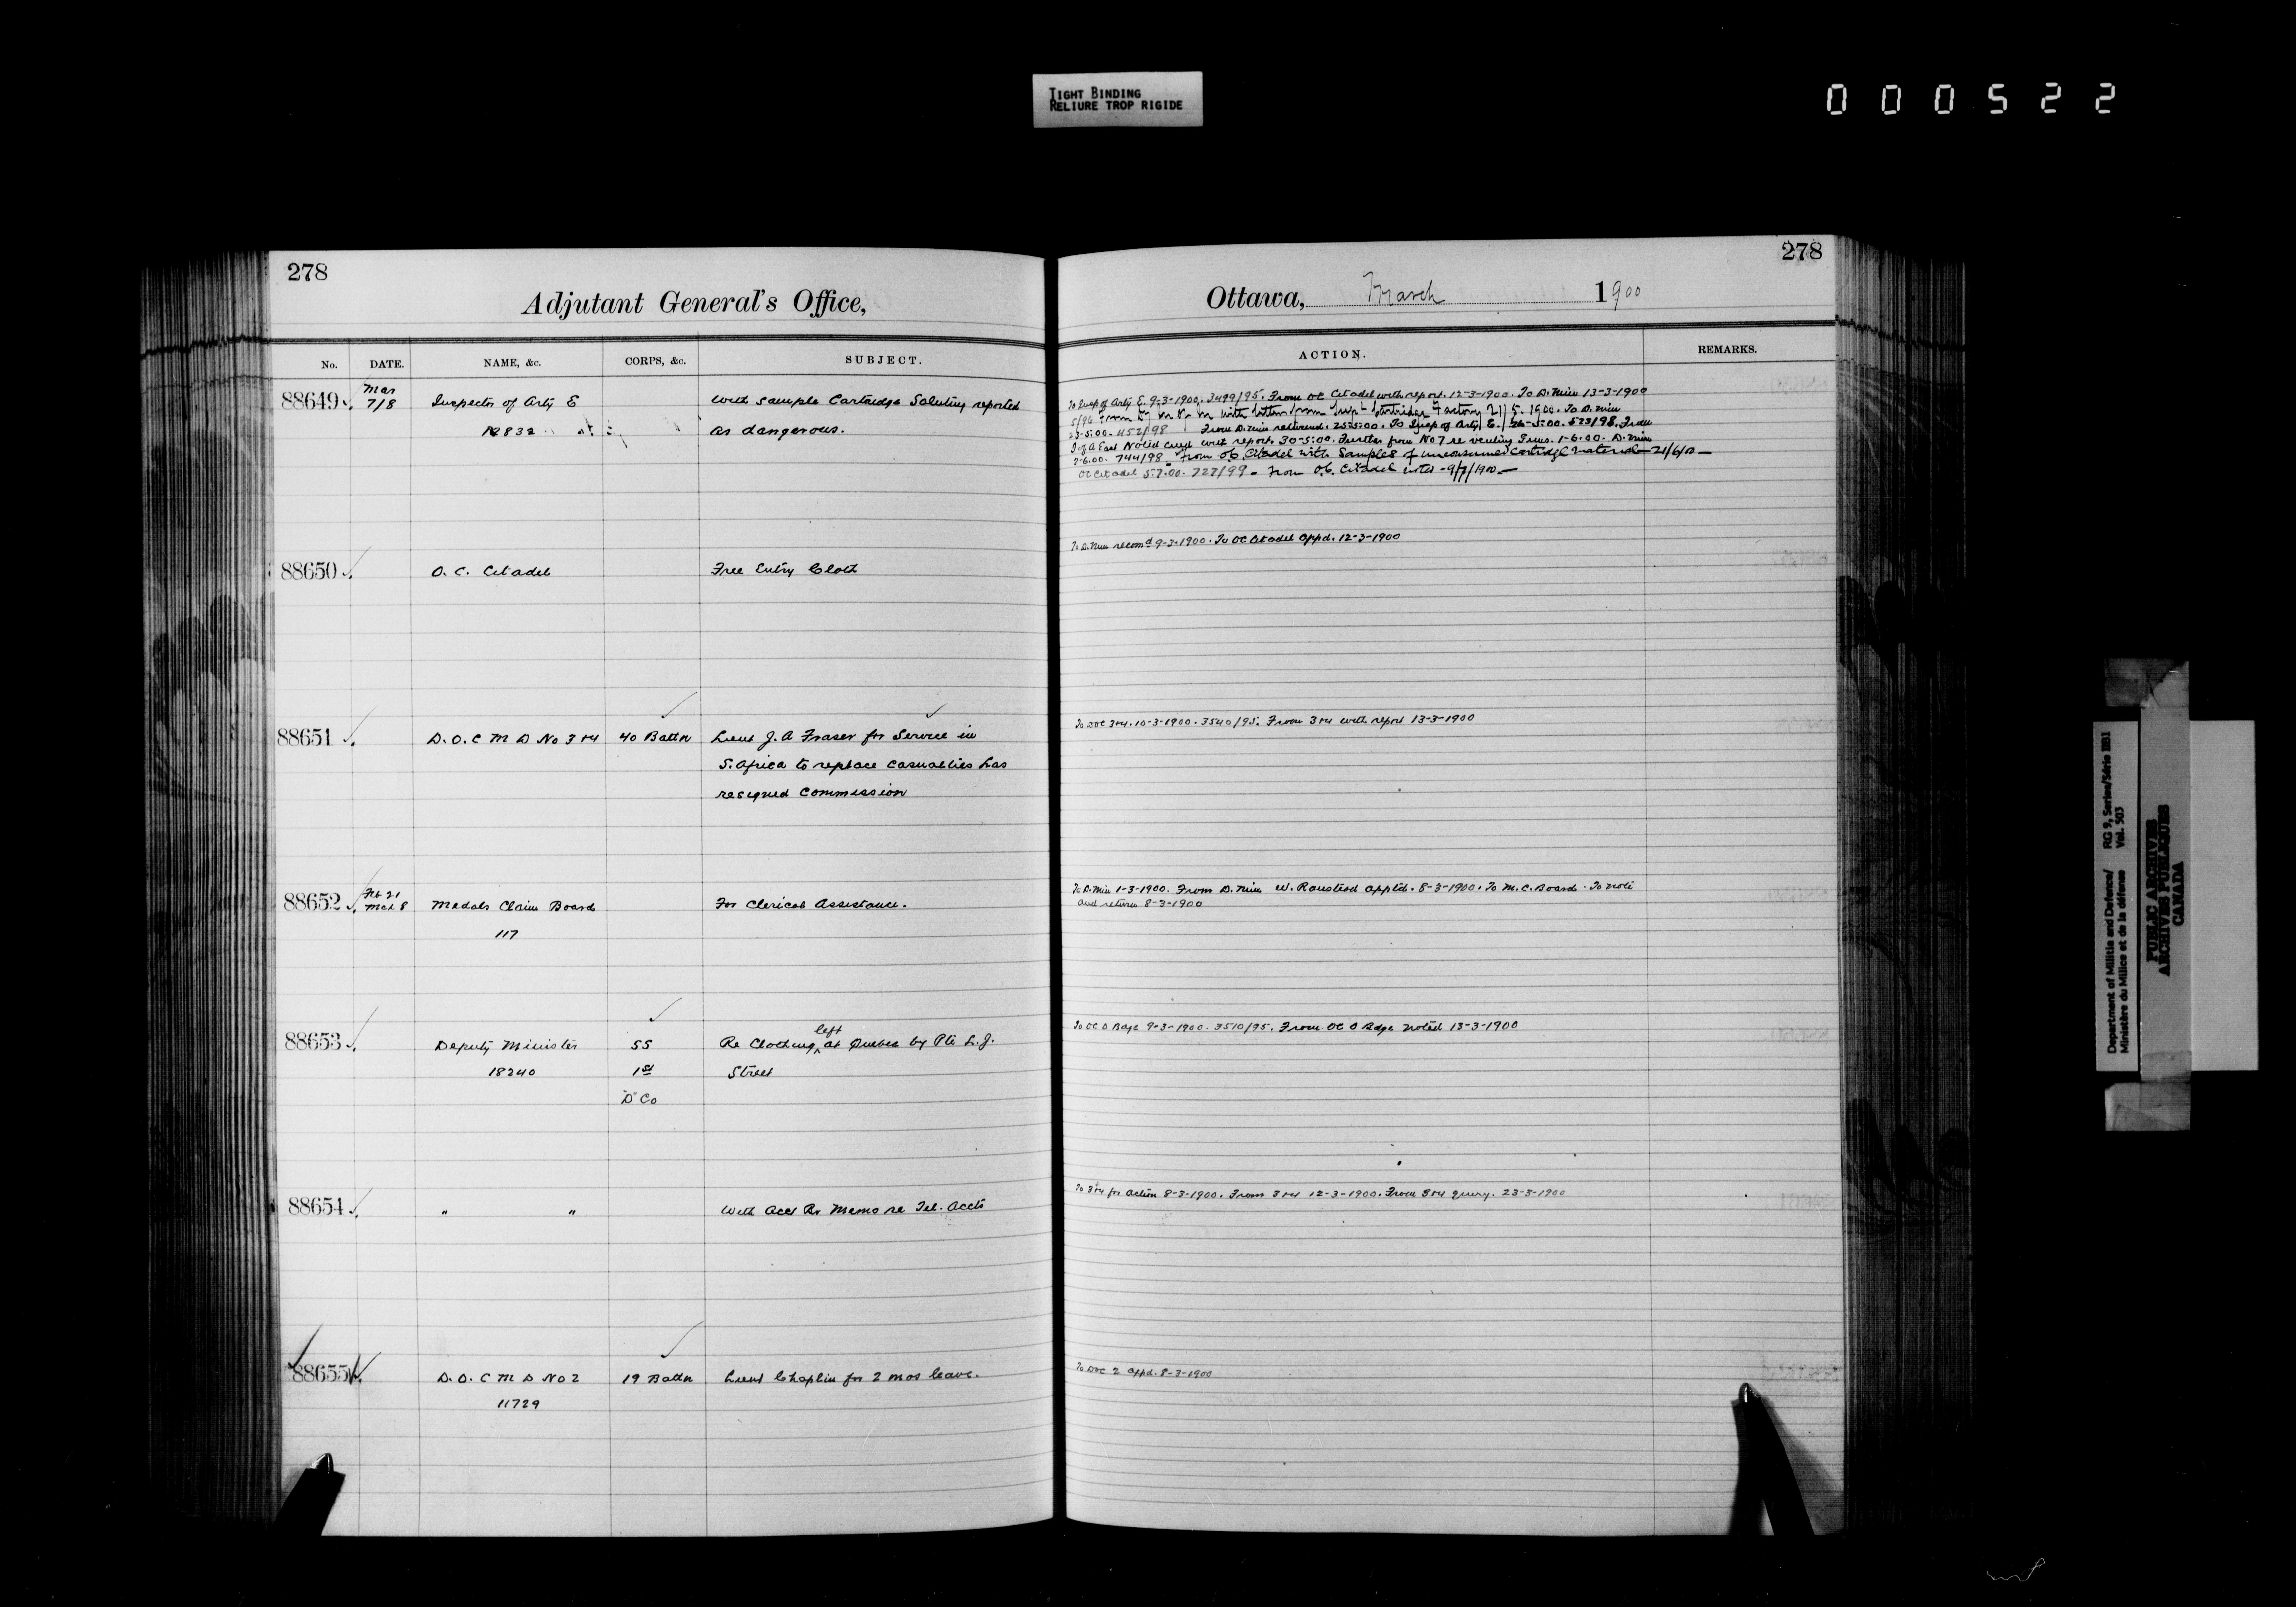 TIGHT BINDING
RELIURE TROP RIGIDE
000522
278
Adjutant General's Office,
No. DATE. NAME, &c. CORPS, &c. SUBJECT.
88649 Mar 7/8 Inspector of Arty E With sample Cartridge Saluting reported
12832 as dangerous.
88650 O. C. Citadel Free Entry Cloth
88651 D. O. C M D No 3 & 4 40 Battn Lieut J. A Fraser for Service in
S. Africa to replace Casualties has
resigned Commission
88652 Feb 21 Mch 8 Medals Claim Board For Clerical Assistance.
117
88653 Deputy Minister 55 Re Clothing left at Quebec by Pte L. J.
18240 1st Street
"D" Co
88654 " " With Acct Br Memo re Tel. Accts
88655 D. O. C M D No 2 19 Battn Lieut Chaplin for 2 mos leave.
11729
278
Ottawa, March 1900
ACTION. REMARKS.
To Insp of Arty E. 9-3-1900. 3499/95. From OC Citadel with report. 12-3-1900. To D. Min 13-3-1900
with letter from Supt Cartridge Factory 21/5.1900. To D. Min
23-5-00. 1152/98 From D. Min returned. 25-5-00. To Insp of Arty E. 26-5-00. 523/98. From
I of A East Noted with report. 30-5-00. Further from No 7 re venting Guns. 1-6-00. D. Min
2-6-00. 744/98 - From O.C. Citadel with Samples of unconsumed Cartridge material - 21/6/00 -
OC Citadel 5-7-00. 727/99 - From O.C. Citadel noted - 9/7/1900 -
To D. Min recomd 9-3-1900. To OC Citadel appd. 12-3-1900
To DOC 3&4. 10-3-1900. 3540/95. From 3&4 with report 13-3-1900
To D. Min 1-3-1900. From D. Min W. appted. 8-3-1900. To M. C. Board. To note
and return 8-3-1900
To OC D Bdge 9-3-1900. 3510/95. From OC D Bdge noted 13-3-1900
To 3&4 for action 8-3-1900. From 3&4 12-3-1900. From 3&4 query. 23-3-1900
To DOC 2 appd. 8-3-1900
Department of Militia and Defence/ RG 9, Series/Série IIB1
Ministère du Milice et de la défense Vol. 503
PUBLIC ARCHIVES
ARCHIVES PUBLIQUES
CANADA